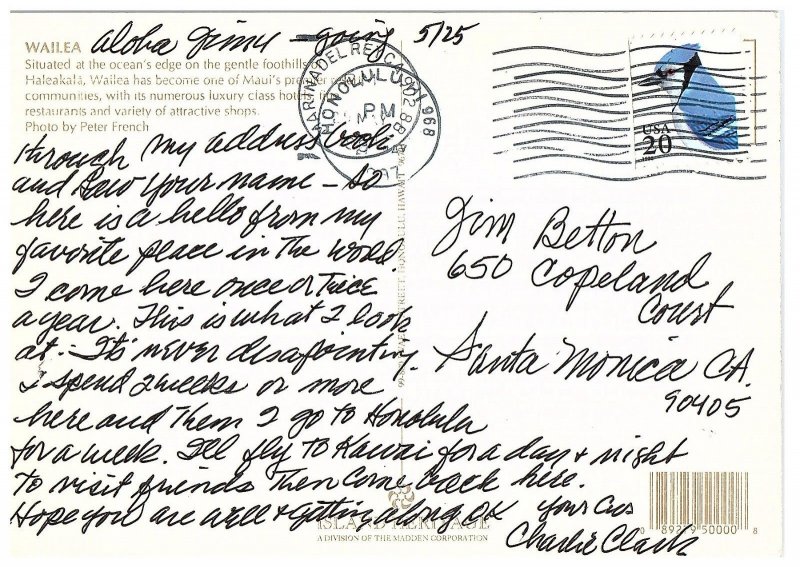 WAILEA
Situated at the ocean's edge on the gentle foothills of
Haleakalā, Wailea has become one of Maui's premier
communities, with its numerous luxury class hotels,
restaurants and variety of attractive shops.
Photo by Peter French
Aloha Jimmy - going 5/25
through my address book
and saw your name - so
here is a hello from my
favorite place in the world.
I come here once or twice
a year. This is what I look
at. It's never desapointing.
I spend 2 weeks or more
here and then I go to Honolulu
for a week. I'll fly to Kawai for a day + night
to visit friends then come back here.
Hope you are well + getting along OK
your
Charlie Clark
Jim Betton
650 Copeland
Court
Santa Monica CA.
90405
MARINA DEL REY CA
HONOLULU
PM
968
USA
20
ISLAND HERITAGE
A DIVISION OF THE MADDEN CORPORATION
0 89279 50000 8